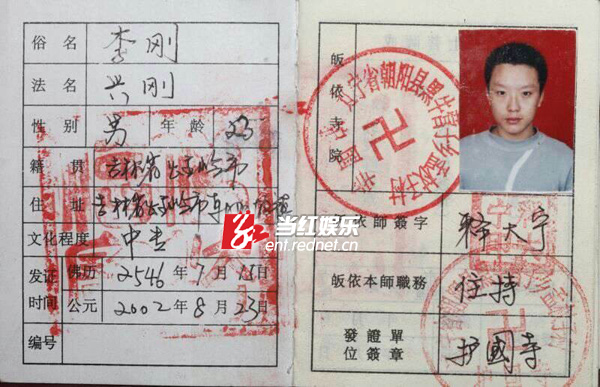 俗名 李刚
法名 兴刚
性别 男 年龄 23
籍贯 吉林省公主岭市
住址 吉林省公主岭市
文化程度 中专
发证时间 佛历 2546年7月15日
公元 2002年8月23日
编号
皈依寺院
辽宁省朝阳县黑牛营子乡
护国寺
皈依本师簽字 释大宁
皈依本师職務 住持
發證單位簽章 护國寺
当红娱乐
ent.rednet.cn